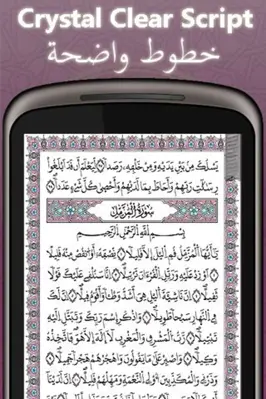 Crystal Clear Script
خطوط واضحة
يَسْلُكُ مِنۢ بَيْنِ يَدَيْهِ وَمِنْ خَلْفِهِۦ رَصَدًا لِّيَعْلَمَ أَن قَدْ أَبْلَغُوا۟
رِسَٰلَٰتِ رَبِّهِمْ وَأَحَاطَ بِمَا لَدَيْهِمْ وَأَحْصَىٰ كُلَّ شَىْءٍ عَدَدًۢا
سُورَةُ الْمُزَّمِّلِ
بِسْمِ اللَّهِ الرَّحْمَٰنِ الرَّحِيمِ
يَٰٓأَيُّهَا ٱلْمُزَّمِّلُ قُمِ ٱلَّيْلَ إِلَّا قَلِيلًا نِّصْفَهُۥٓ أَوِ ٱنقُصْ مِنْهُ قَلِيلًا
أَوْ زِدْ عَلَيْهِ وَرَتِّلِ ٱلْقُرْءَانَ تَرْتِيلًا إِنَّا سَنُلْقِى عَلَيْكَ قَوْلًا
ثَقِيلًا إِنَّ نَاشِئَةَ ٱلَّيْلِ هِىَ أَشَدُّ وَطْـًٔا وَأَقْوَمُ قِيلًا إِنَّ لَكَ
فِى ٱلنَّهَارِ سَبْحًا طَوِيلًا وَٱذْكُرِ ٱسْمَ رَبِّكَ وَتَبَتَّلْ إِلَيْهِ
تَبْتِيلًا رَّبُّ ٱلْمَشْرِقِ وَٱلْمَغْرِبِ لَآ إِلَٰهَ إِلَّا هُوَ فَٱتَّخِذْهُ
وَكِيلًا وَٱصْبِرْ عَلَىٰ مَا يَقُولُونَ وَٱهْجُرْهُمْ هَجْرًا جَمِيلًا
وَذَرْنِى وَٱلْمُكَذِّبِينَ أُو۟لِى ٱلنَّعْمَةِ وَمَهِّلْهُمْ قَلِيلًا إِنَّ